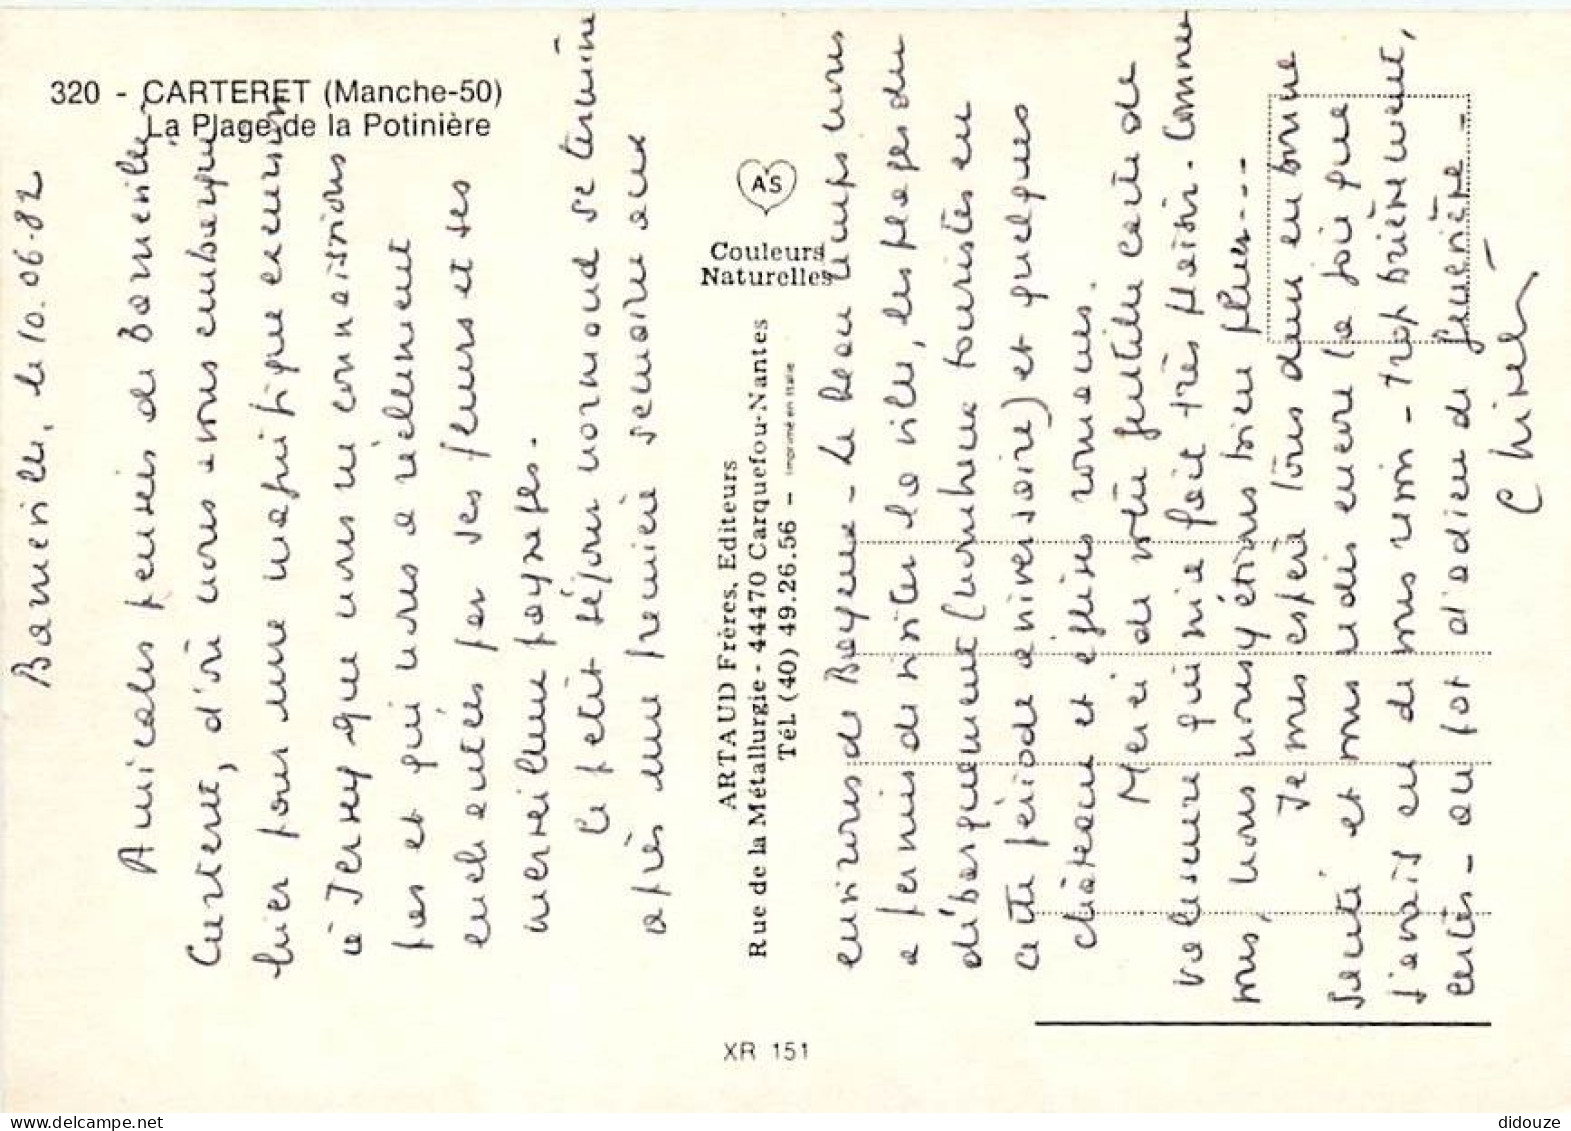 320 - CARTERET (Manche-50)
La Plage de la Potinière
Barneville, le 10.06.82
Amicales pensées de Barneville,
Carteret, d'où nous embarquions
hier pour une magnifique excursion
à Jersey que nous ne connaissions
pas et qui nous a réellement
enchantés par ses fleurs et ses
merveilleux paysages.
Ce petit séjour normand se termine
après une première semaine aux
AS
Couleurs
Naturelles
ARTAUD Frères, Editeurs
Rue de la Métallurgie - 44470 Carquefou-Nantes
Tél. (40) 49.26.56 - Imprimé en Italie
XR 151
environs de Bayeux - Le beau temps nous
a permis de visiter la ville, les plages du
débarquement (nombreux touristes en
cette période anniversaire) et quelques
châteaux et églises romanes.
Merci de votre gentille carte de
qui m'a fait très plaisir. Comme
vous, nous nous y étions bien plus...
Je vous espère tous deux en bonne
santé et vous redis encore la joie que
j'avais eu de vous revoir - trop brièvement,
certes - au pot d'adieu de